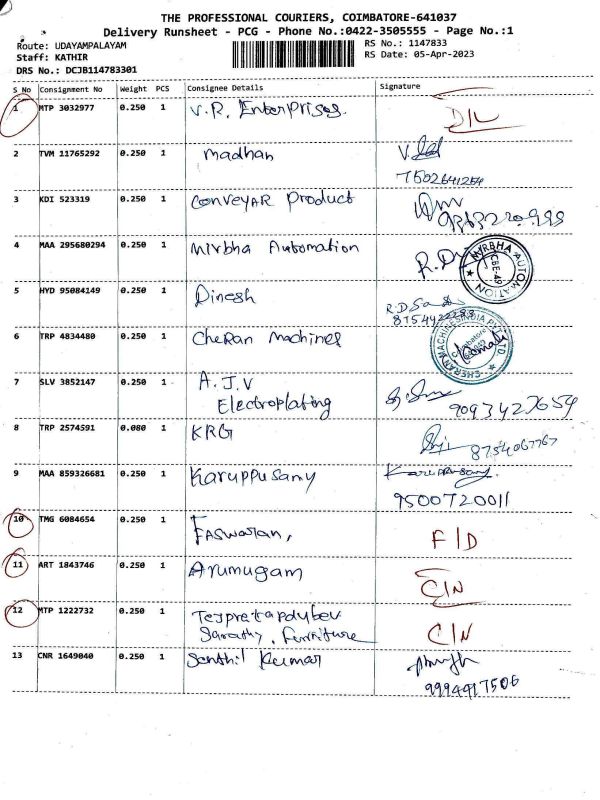 THE PROFESSIONAL COURIERS, COIMBATORE-641037
Delivery Runsheet - PCG - Phone No.:0422-3505555 - Page No.:1
Route: UDAYAMPALAYAM RS No.: 1147833
Staff: KATHIR RS Date: 05-Apr-2023
DRS No.: DCJB114783301
S No Consignment No Weight PCS Consignee Details Signature
1 MTP 3032977 0.250 1 V.R. Enterprises. D/L
2 TVM 11765292 0.250 1 madhan
7502641254
3 KDI 523319 0.250 1 Conveyar Product
4 MAA 295680294 0.250 1 Mirbha Automation MYRBHA AUTOMATION CBE-49
5 HYD 95084149 0.250 1 Dinesh
6 TRP 4834480 0.250 1 CheRan Machines CHERAN MACHINES INDIA PVT LTD Coimbatore
7 SLV 3852147 0.250 1 A.J.V
Electroplating 9093427654
8 TRP 2574591 0.080 1 KRG
8754067767
9 MAA 859326681 0.250 1 Karuppusamy Karuppusamy
9500720011
10 TMG 6084654 0.250 1 Easwaran, F/D
11 ART 1843746 0.250 1 Arumugam C/N
12 MTP 1222732 0.250 1
Sarathy, Furniture C/N
13 CNR 1649040 0.250 1 Senthil Kumar
9994917506